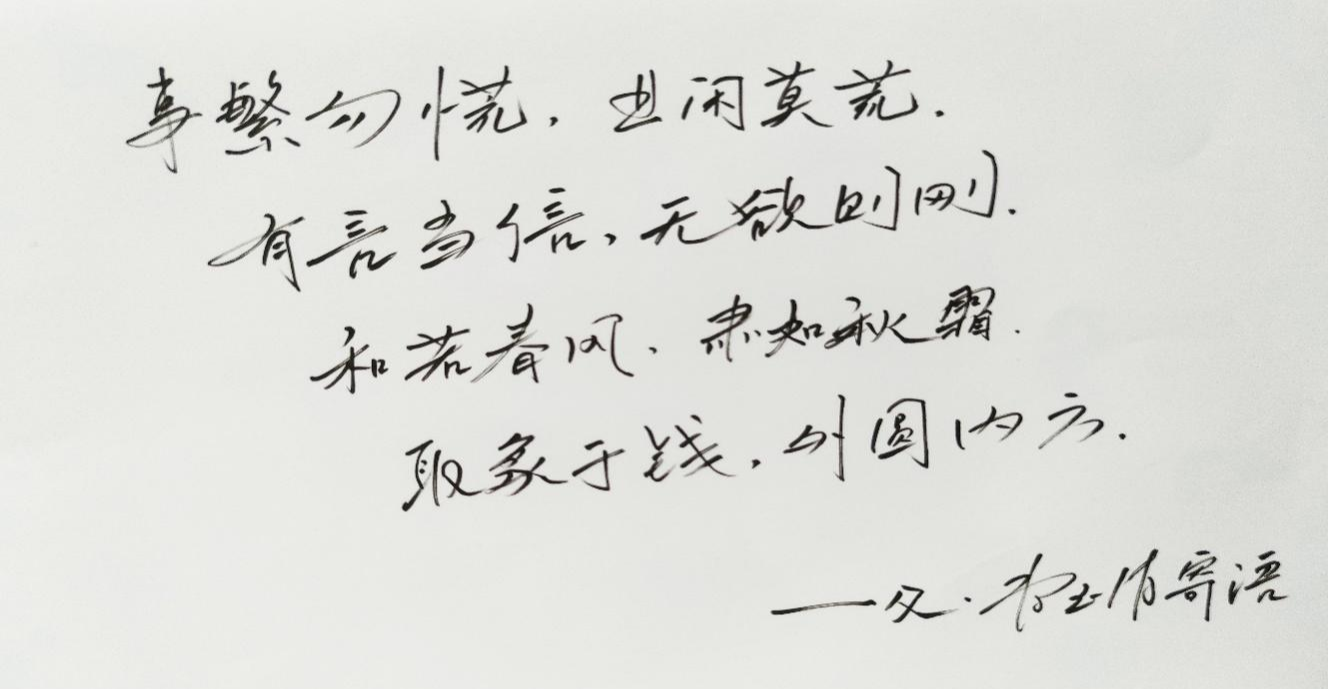 事繁勿慌,业闲莫荒.
有言当信,无欲则刚.
和若春风,肃如秋霜.
取象于钱,外圆内方.
——父·寄语